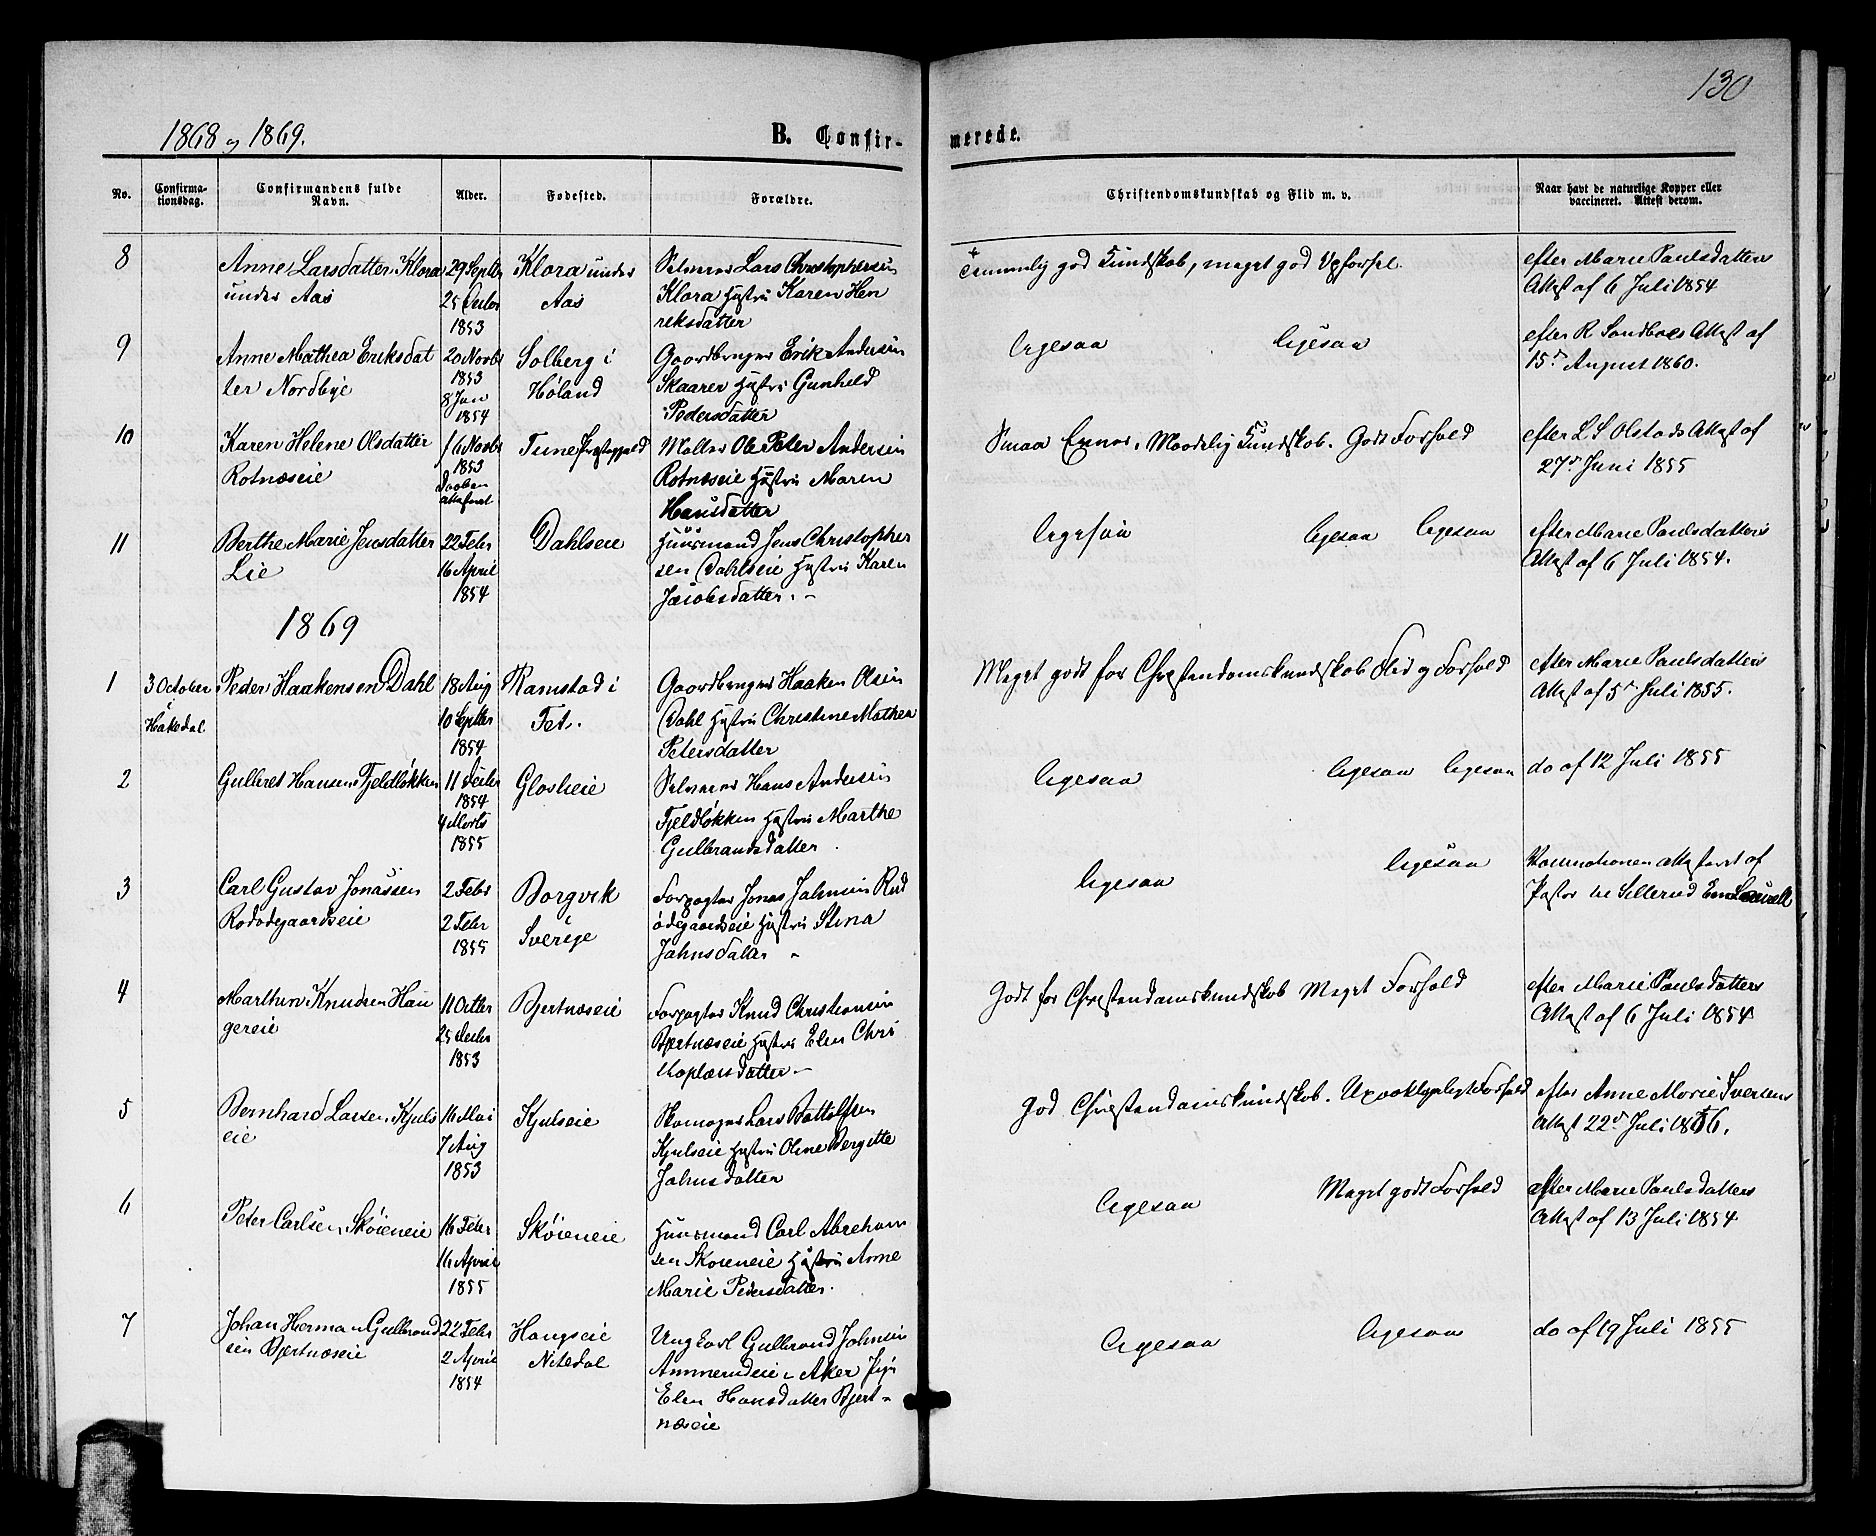 130
1868 og 1869.
B. Confir-
merede.
No.
Confirma-
tionsdag.
Confirmandens fulde
Navn.
Alder.
Fødested.
Forældre.
Christendomskundskab og Flid m. v.
Naar havt de naturlige Kopper eller
vaccineret. Attest derom.
8
Anne Larsdatter Klora
under Aas
29 Septbr
25 Decbr
1853
Klora under
Aas
Selveier Lars Christophersen
Klora Hustru Karen Hen
reksdatter
Temmelig god Kundskab, meget god Opførsel.
efter Marie Paulsdatters
Attest af 6 Juli 1854
9
Anne Mathea Eriksdat
ter Nordbye
20 Novbr
1853
8 Jan
1854
Solberg i
Høland
Gaardbruger Erik Andersen
Skaarer Hustru Gunheld
Pedersdatter
ligesaa
ligesaa
efter R Sandboes Attest af
15de August 1860.
10
Karen Helene Olsdatter
Rotnæseie
16 Novbr
1853
Daaben
Tune Præstegjeld
Møller Ole Peter Andersen
Rotnæseie Hustru Maren
Hansdatter
Smaa Evner, Maadelig Kundskab. Godt Forhold
efter L S Olstads Attest af
27de Juni 1855
11
Berthe Marie Jensdatter
Lie
22 Febr
16 April
1854
Dahlseie
Huusmand Jens Christopher
sen Dahlseie Hustru Karen
Jacobsdatter. -
ligesaa
ligesaa
ligesaa
efter Marie Paulsdatters
Attest af 6 Juli 1854.
1869
1
3 October
i
Hakedal
Peder Haakensen Dahl
18 Aug
10 Septbr
1854
Ramstad i
Fet.
Gaardbruger Haaken Olsen
Dahl Hustru Christine Mathea
Petersdatter
Meget godt for Christendomskundskab Flid og Forhold
efter Marie Paulsdatters
Attest af 5de Juli 1855.
2
Gulbret Hansen Fjeldløkken
11 Decbr
1854
4 Marts
1855
Glosheie
Selveier Hans Andersen
Fjeldløkken Hustru Marthe
Gulbrandsdatter.
ligesaa
ligesaa
ligesaa
do af 12 Juli 1855
3
Carl Gustav Jonassen
Rødødegaardseie
2 Febr
2 Febr
1855
Borgvik
Sverige
Forpagter Jonas Jahnsen Rød
ødegaardseie Hustru Stina
Jahnsdatter -
ligesaa
ligesaa
Vaccinationen attesteret af
Pastor in Sillerud
4
Marthin Knudsen Hau
gereie
11 Octbr
25 Decbr
1853
Bjertnæseie
Forpagter Knud Christiansen
Bjertnæseie Hustru Elen Chri
stophersdatter -
Godt for Christendomskundskab Meget Forhold
efter Marie Paulsdatters
Attest af 6 Juli 1854
5
Bernhard Larsen Kjuls
eie
16 Mai
7 Aug
1853
Kjulseie
Skomager Lars Battolfsen
Kjulseie Hustru Oline Bergitte
Jahnsdatter
God Christendomskundskab. Upaaklageligt Forhold
efter Anne Marie Iversens
Attest 22de Juli 1866.
6
Peter Carlsen Skøieneie
16 Febr
16 April
1855
Skøieneie
Huusmand Carl Abraham
sen Skøieneie Hustru Anne
Marie Pedersdatter.
ligesaa
Meget godt Forhold
efter Marie Paulsdatters
Attest af 13 Juli 1854
7
Johan Herman Gulbrand
sen Bjertnæseie
22 Febr
2 April
1854
Haugseie
Nitedal
Ungkarl Gulbrand Johnsen
Ammerudeie i Aker Pige
Elen Hansdatter Bjert-
næseie
ligesaa
ligesaa
do af 19 Juli 1855